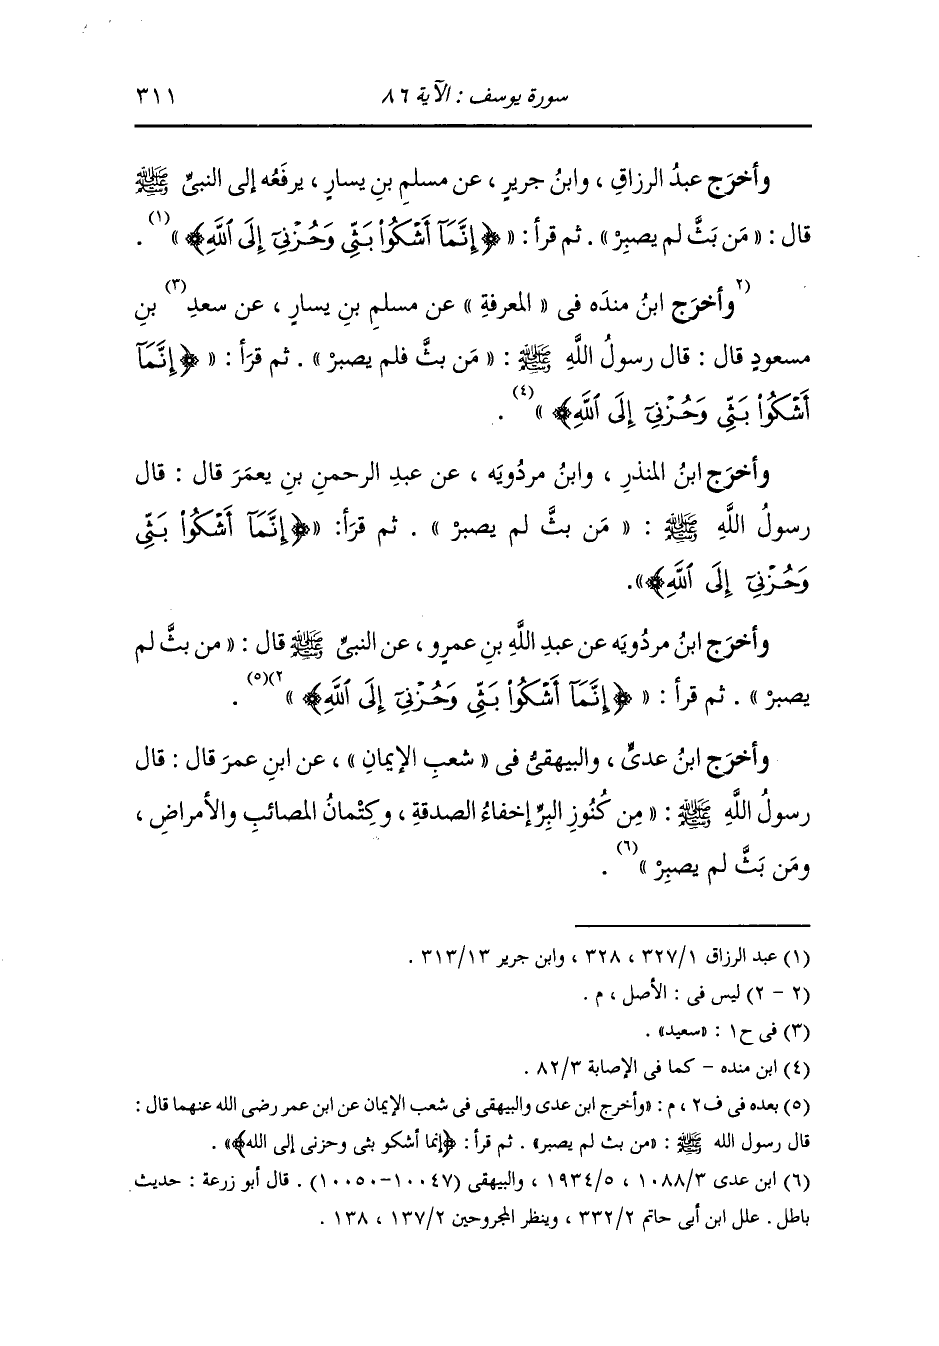 سورة يوسف : الآية ٨٦ ٣١١
وأخرَج عبدُ الرزاقِ ، وابنُ جريرٍ ، عن مسلمِ بنِ يسارٍ ، يرفَعُه إلى النبىِّ ﷺ
قال : « مَن بَثَّ لم يصبِرْ » . ثم قرأ : « ﴿ إِنَّمَآ أَشْكُوا۟ بَثِّى وَحُزْنِىٓ إِلَى ٱللَّهِ ﴾ »(١) .
(٢وأخرَج ابنُ مندَه فى « المعرفةِ » عن مسلمِ بنِ يسارٍ ، عن سعدِ(٣) بنِ
مسعودٍ قال : قال رسولُ اللَّهِ ﷺ : « مَن بثَّ فلم يصبرْ » . ثم قرَأ : « ﴿ إِنَّمَآ
أَشْكُوا۟ بَثِّى وَحُزْنِىٓ إِلَى ٱللَّهِ ﴾ »(٤) .
وأخرَج ابنُ المنذرِ ، وابنُ مردُويَه ، عن عبدِ الرحمنِ بنِ يعمَرَ قال : قال
رسولُ اللَّهِ ﷺ : « مَن بثَّ لم يصبرْ » . ثم قرَأ: «﴿ إِنَّمَآ أَشْكُوا۟ بَثِّى
وَحُزْنِىٓ إِلَى ٱللَّهِ ﴾».
وأخرَج ابنُ مردُويَه عن عبدِ اللَّهِ بنِ عمرٍو ، عن النبىِّ ﷺ قال : « من بثَّ لم
يصبرْ » . ثم قرأ : « ﴿ إِنَّمَآ أَشْكُوا۟ بَثِّى وَحُزْنِىٓ إِلَى ٱللَّهِ ﴾ »٢)(٥) .
وأخرَج ابنُ عدىٍّ ، والبيهقىُّ فى « شعبِ الإيمانِ » ، عن ابنِ عمرَ قال : قال
رسولُ اللَّهِ ﷺ : « مِن كُنُوزِ البِرِّ إخفاءُ الصدقةِ ، وكِتْمانُ المصائبِ والأمراضِ ،
ومَن بَثَّ لم يصبِرْ »(٦) .
(١) عبد الرزاق ٣٢٧/١ ، ٣٢٨ ، وابن جرير ٣١٣/١٣ .
(٢ - ٢) ليس فى : الأصل ، م .
(٣) فى ح١ : «سعيد» .
(٤) ابن منده - كما فى الإصابة ٨٢/٣ .
(٥) بعده فى ف٢ ، م : «وأخرج ابن عدى والبيهقى فى شعب الإيمان عن ابن عمر رضى الله عنهما قال :
قال رسول الله ﷺ : «من بث لم يصبر» . ثم قرأ : ﴿إنما أشكو بثى وحزنى إلى الله﴾» .
(٦) ابن عدى ١٠٨٨/٣ ، ١٩٣٤/٥ ، والبيهقى (١٠٠٤٧-١٠٠٥٠) . قال أبو زرعة : حديث
باطل . علل ابن أبى حاتم ٣٣٢/٢ ، وينظر المجروحين ١٣٧/٢ ، ١٣٨ .